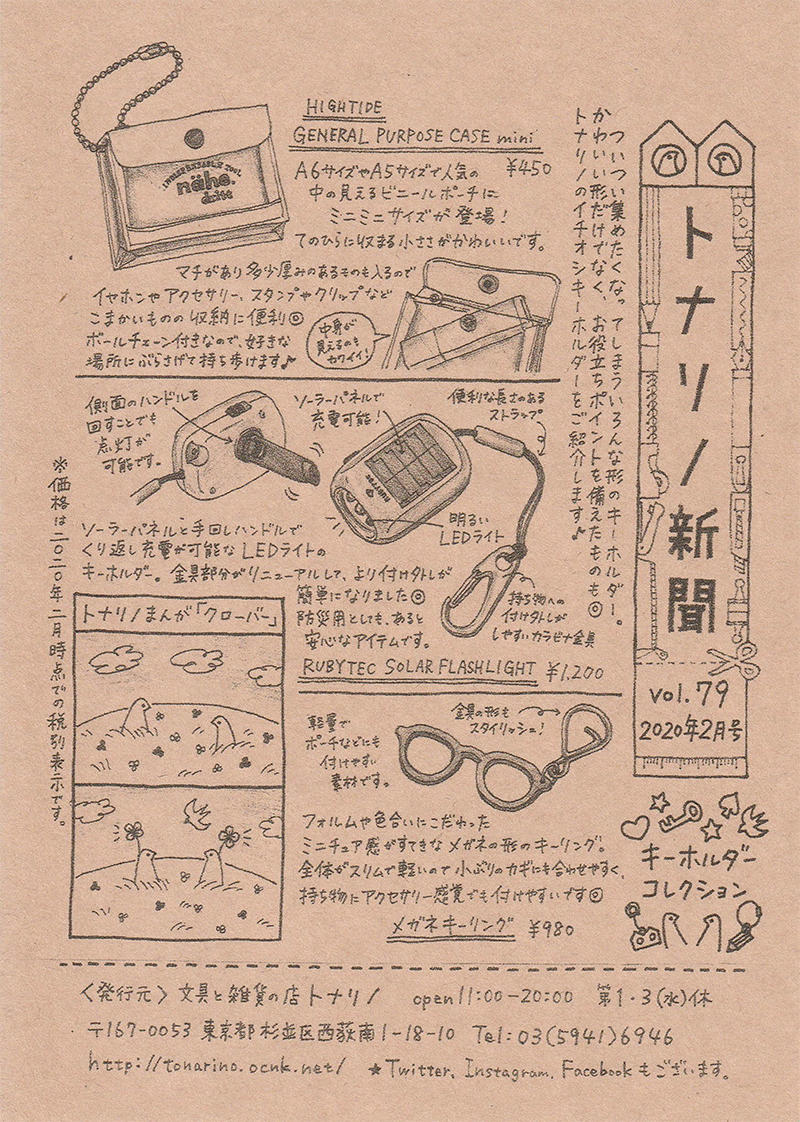 トナリノ新聞
vol.79
2020年2月号
キーホルダー
コレクション
ついつい集めたくなってしまういろんな形のキーホルダー。
かわいい形だけでなく、お役立ちポイントを備えたものも◎
トナリノのイチオシキーホルダーをご紹介します♪
HIGHTIDE
GENERAL PURPOSE CASE mini
¥450
A6サイズやA5サイズで人気の
中の見えるビニールポーチに
ミニミニサイズが登場!
てのひらに収まる小ささがかわいいです。
nähe
マチがあり多少厚みのあるものも入るので
イヤホンやアクセサリー、スタンプやクリップなど
こまかいものの収納に便利◎
ボールチェーン付きなので、好きな
場所にぶらさげて持ち歩けます♪
中身が
見えるのも
カワイイ!
側面のハンドルを
回すことでも
点灯が
可能です。
ソーラーパネルで
充電可能!
便利な長さのある
ストラップ
明るい
LEDライト
持ち物への
付け外しが
しやすいカラビナ金具
ソーラーパネルと手回しハンドルで
くり返し充電が可能なLEDライトの
キーホルダー。金具部分がリニューアルして、より付け外しが
簡単になりました◎
防災用としても、あると
安心なアイテムです。
RUBYTEC SOLAR FLASHLIGHT ¥1,200
軽量で
ポーチなどにも
付けやすい
素材です。
金具の形も
スタイリッシュ!
フォルムや色合いにこだわった
ミニチュア感がすてきなメガネの形のキーリング。
全体がスリムで軽いので小ぶりのカギにも合わせやすく、
持ち物にアクセサリー感覚でも付けやすいです◎
メガネキーリング ¥980
トナリノまんが「クローバー」
※価格は二〇二〇年二月時点での税別表示です。
〈発行元〉文具と雑貨の店トナリノ open 11:00-20:00 第1・3(水)休
〒167-0053 東京都杉並区西荻南1-18-10 Tel:03(5941)6946
http://tonarino.ocnk.net/ ★Twitter、Instagram、Facebookもございます。